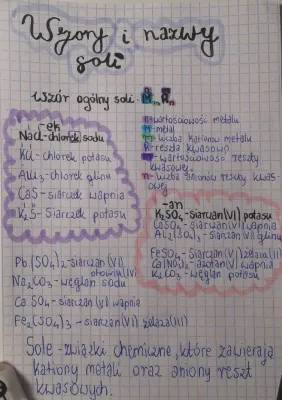 Wzory i nazwy
soli
Wzór ogólny soli - MnRm
n-wartościowość metalu
M-metal
m-liczba kationów metalu
R-reszta kwasowa
m-wartościowość reszty
kwasowej
n-liczba anionów reszty kwas-
owej
-ek
NaCl-chlorek sodu
KCl-chlorek potasu
AlCl₃-chlorek glinu
CaS-siarczek wapnia
K₂S-siarczek potasu
-an
K₂SO₄-siarczan(VI) potasu
CaSO₄-siarczan(VI) wapnia
Al₂(SO₄)₃-siarczan(VI) glinu
FeSO₄-siarczan(VI) żelaza(II)
Ca(NO₃)₂-azotan(V) wapnia
K₂CO₃-węglan potasu
Pb(SO₄)₂-siarczan(VI)
ołowiu(IV)
Na₂CO₃-węglan sodu
CaSO₄-siarczan(VI) wapnia
Fe₂(SO₄)₃-siarczan(VI) żelaza(III)
Sole-związki chemiczne, które zawierają
kationy metali oraz aniony reszt
kwasowych.